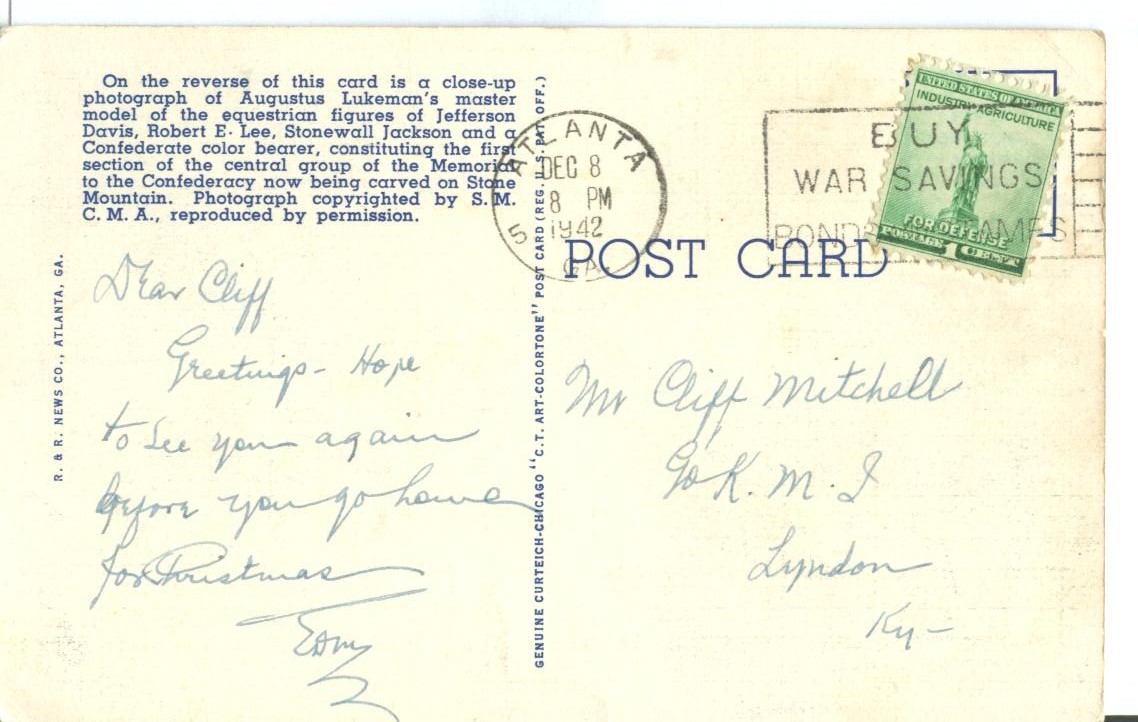 On the reverse of this card is a close-up
photograph of Augustus Lukeman's master
model of the equestrian figures of Jefferson
Davis, Robert E. Lee, Stonewall Jackson and a
Confederate color bearer, constituting the first
section of the central group of the Memorial
to the Confederacy now being carved on Stone
Mountain. Photograph copyrighted by S. M.
C. M. A., reproduced by permission.
R. & R. NEWS CO., ATLANTA, GA.
Dear Cliff
Greetings - Hope
to see you again
before you go home
for Christmas
GENUINE CURTEICH-CHICAGO "C.T. ART-COLORTONE" POST CARD (REG. U.S. PAT. OFF.)
ATLANTA
DEC 8
8 PM
1942
5 GA.
BUY
WAR SAVINGS
BONDS STAMPS
UNITED STATES OF AMERICA
INDUSTRY AGRICULTURE
FOR DEFENSE
POSTAGE 1 CENT
POST CARD
Mr Cliff Mitchell
℅ K. M. I
Lyndon
Ky-